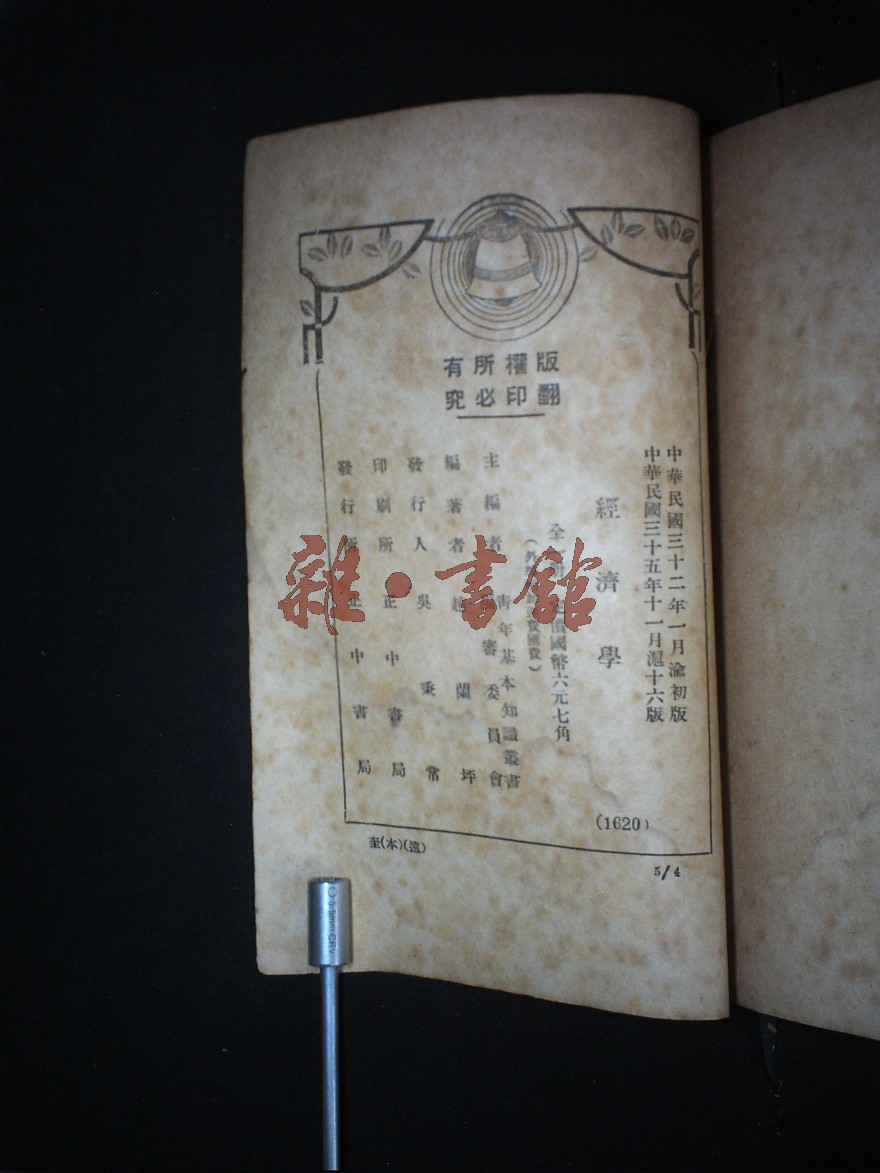 版權所有
翻印必究
中華民國三十二年一月渝初版
中華民國三十五年十一月滬十六版
經濟學
全一冊 定價國幣六元七角
（外費匯費）
主編者 青年基本知識叢書
編審委員會
編著者 趙蘭坪
發行人 吳秉常
印刷所 正中書局
發行所 正中書局
(1620)
至(本)(遠)
5/4
雜·書館
5.5mm CRV